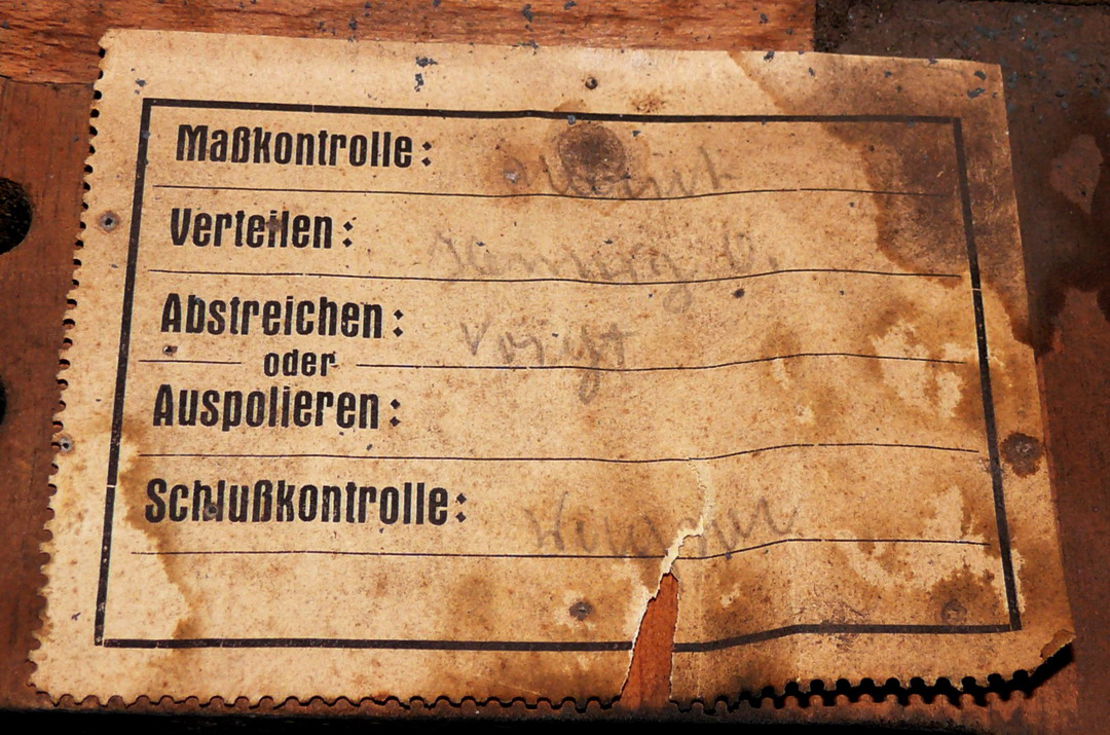 Maßkontrolle:
Verteilen:
Abstreichen: Voigt
oder
Auspolieren:
Schlußkontrolle: